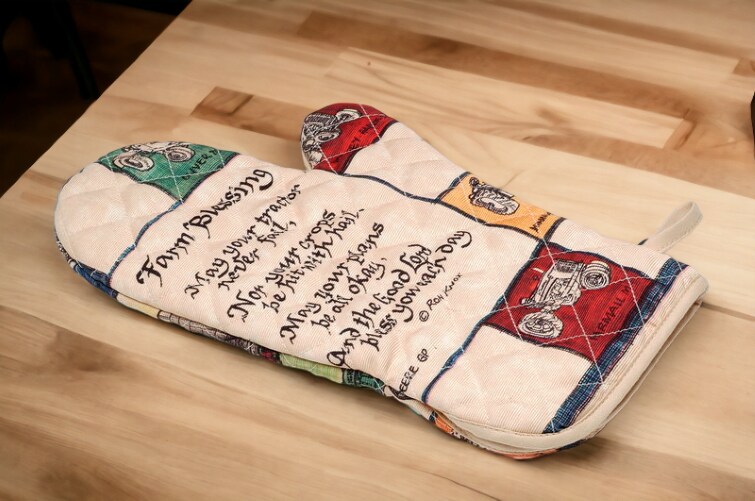 Farm Blessing
May your tractor
never fail,
Nor your crops
be hit with hail.
May your plans
be all okay,
And the Good Lord
bless you each day
© Ron Knox
DEERE GP
FARMALL